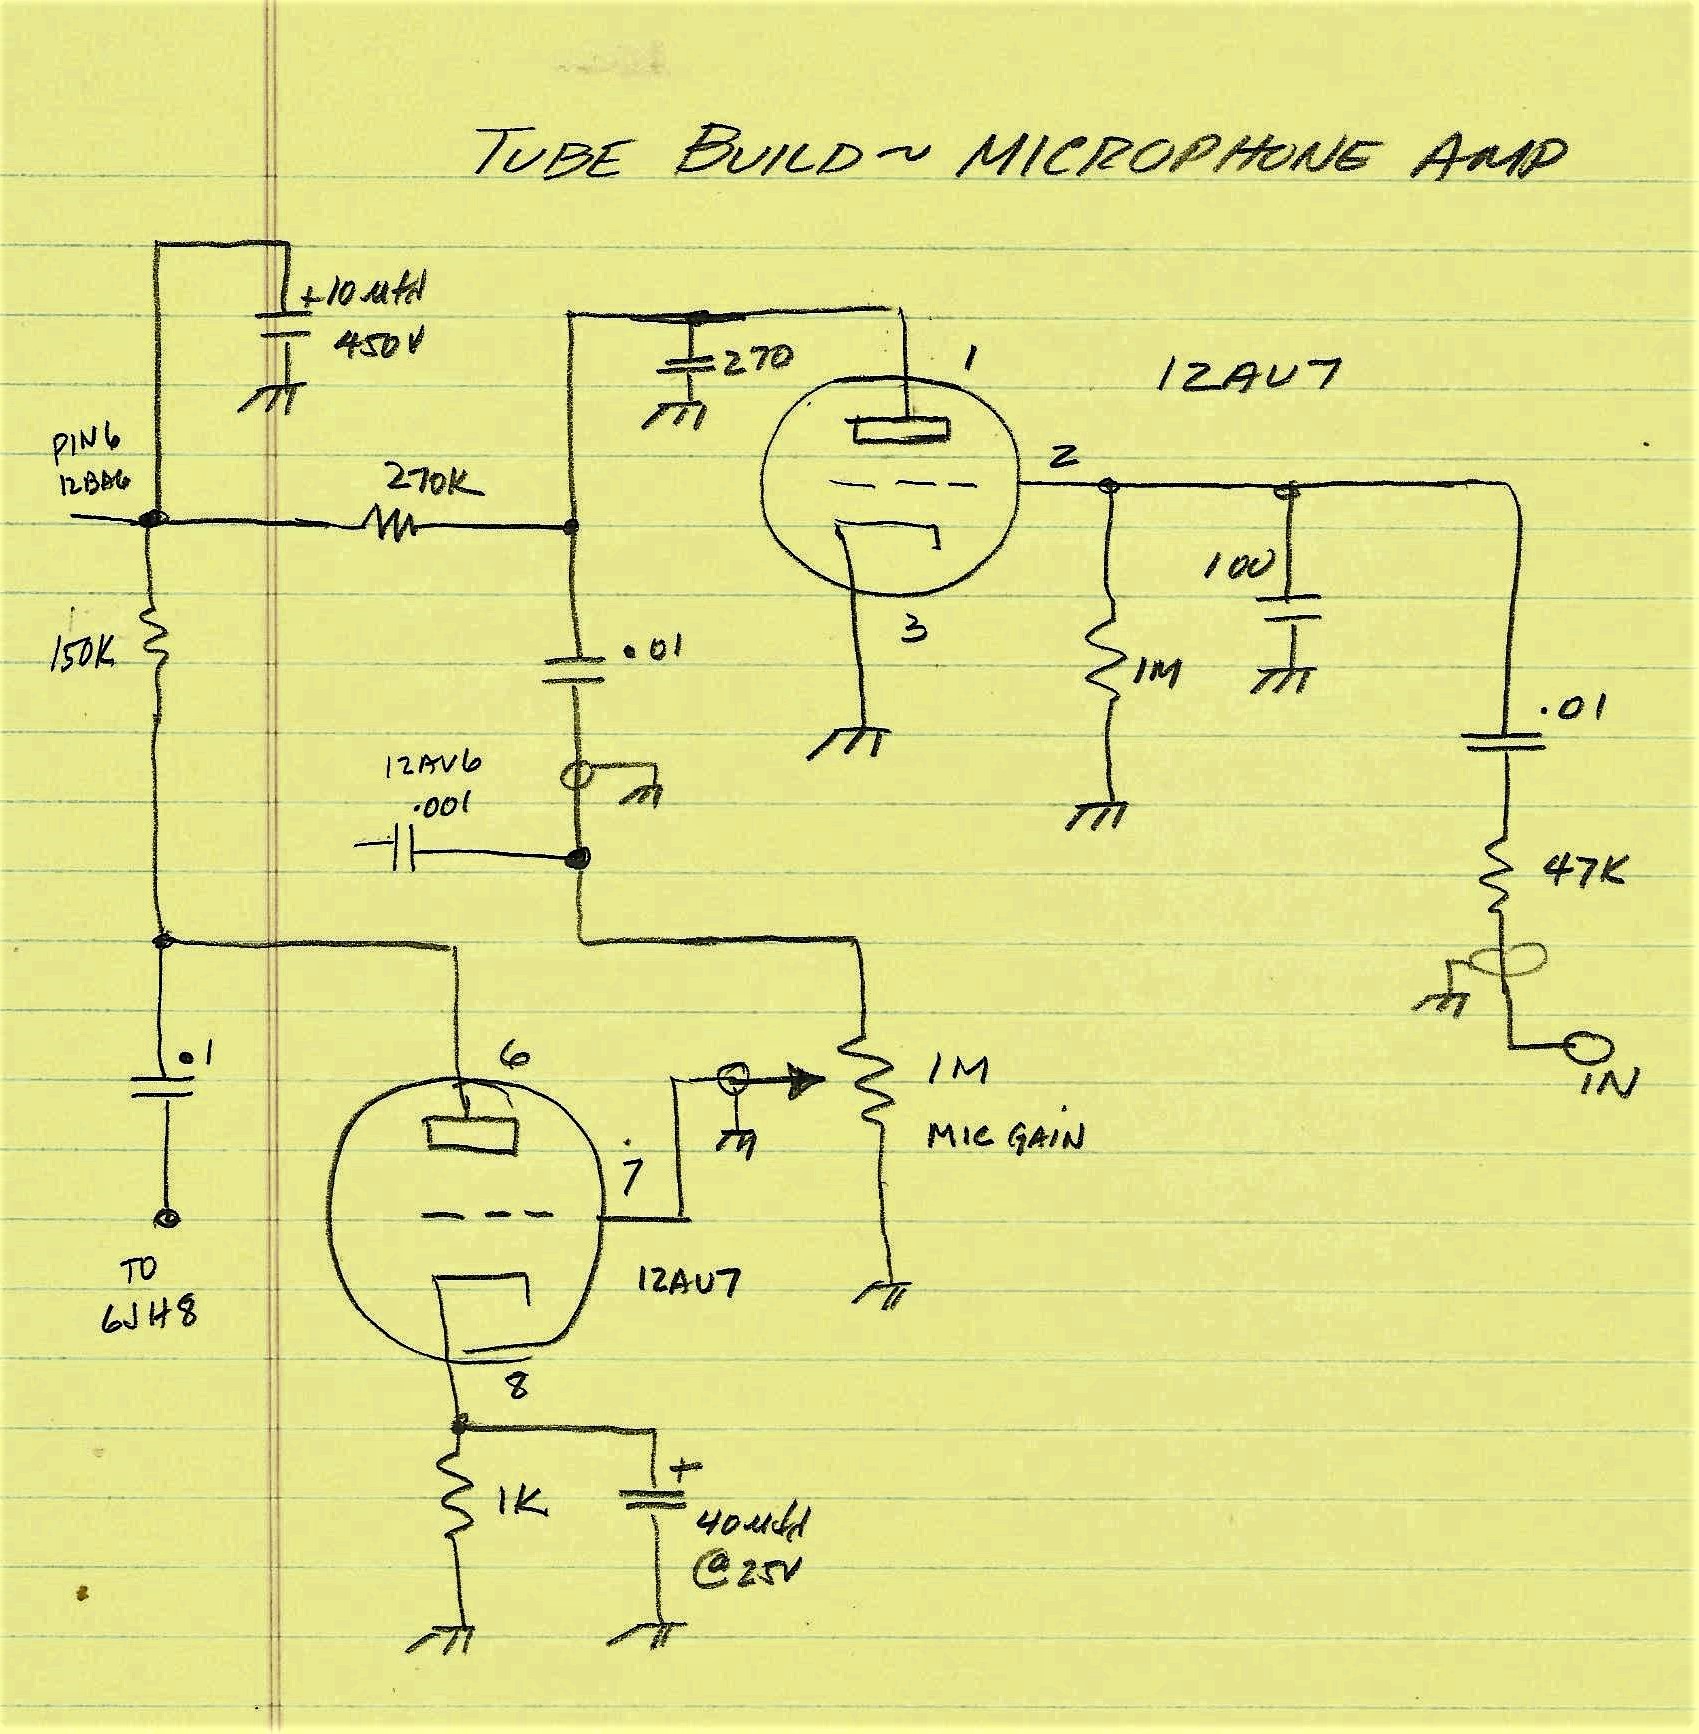 TUBE BUILD ~ MICROPHONE AMP
+10 µfd
450V
270
1
12AU7
PIN 6
12BA6
270K
2
100
3
150K
.01
1M
.01
12AV6
.001
47K
.1
6
1M
IN
MIC GAIN
7
TO
6JH8
12AU7
8
+
1K
40 µfd
@ 25V